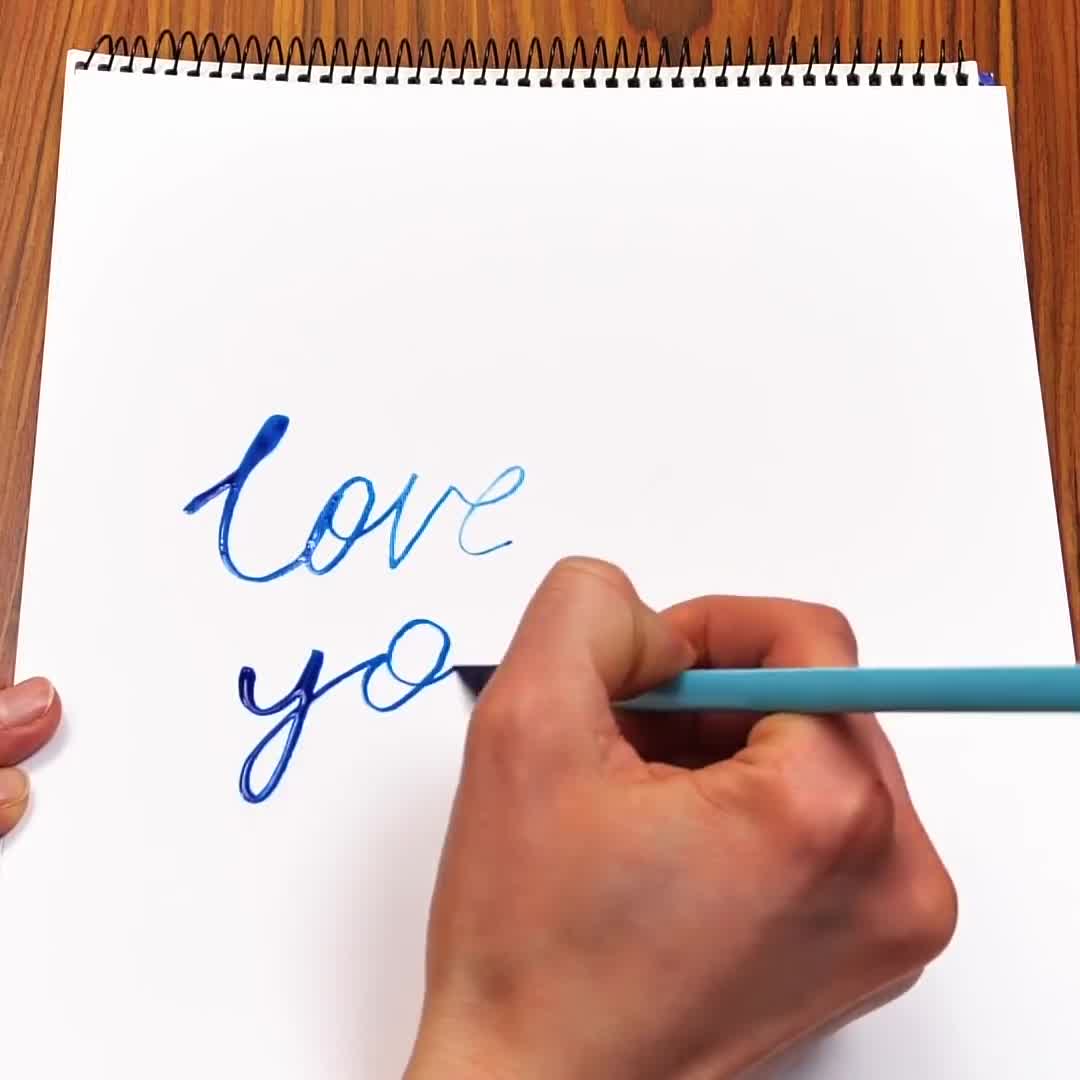 love
yo